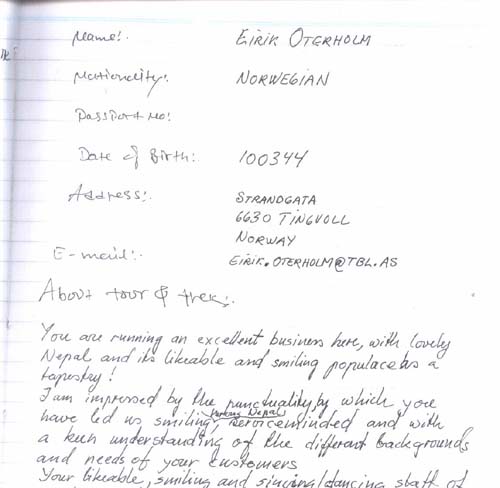 Name: EIRIK OTERHOLM
Nationality: NORWEGIAN
Passport No:
Date of Birth: 100344
Address: STRANDGATA
6630 TINGVOLL
NORWAY
E-mail: EIRIK.OTERHOLM@TBL.AS
About tour & trek:
You are running an excellent business here, with lovely
Nepal and its likeable and smiling populace as a
tapestry!
I am impressed by the punctuality, by which you
have led us smiling, Nepal, serviceminded and with
a keen understanding of the different backgrounds
and needs of your customers
Your likeable, smiling and singing/dancing staff of